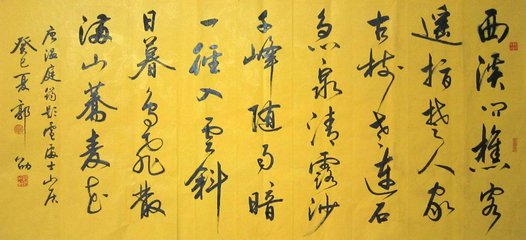 西溪问樵客
遥指楚人家
古树老连石
急泉清露沙
千峰随雨暗
一徑入雲斜
日暮鸟飞散
满山蕎麦花
唐温庭筠题盧處士山居
癸巳夏郭